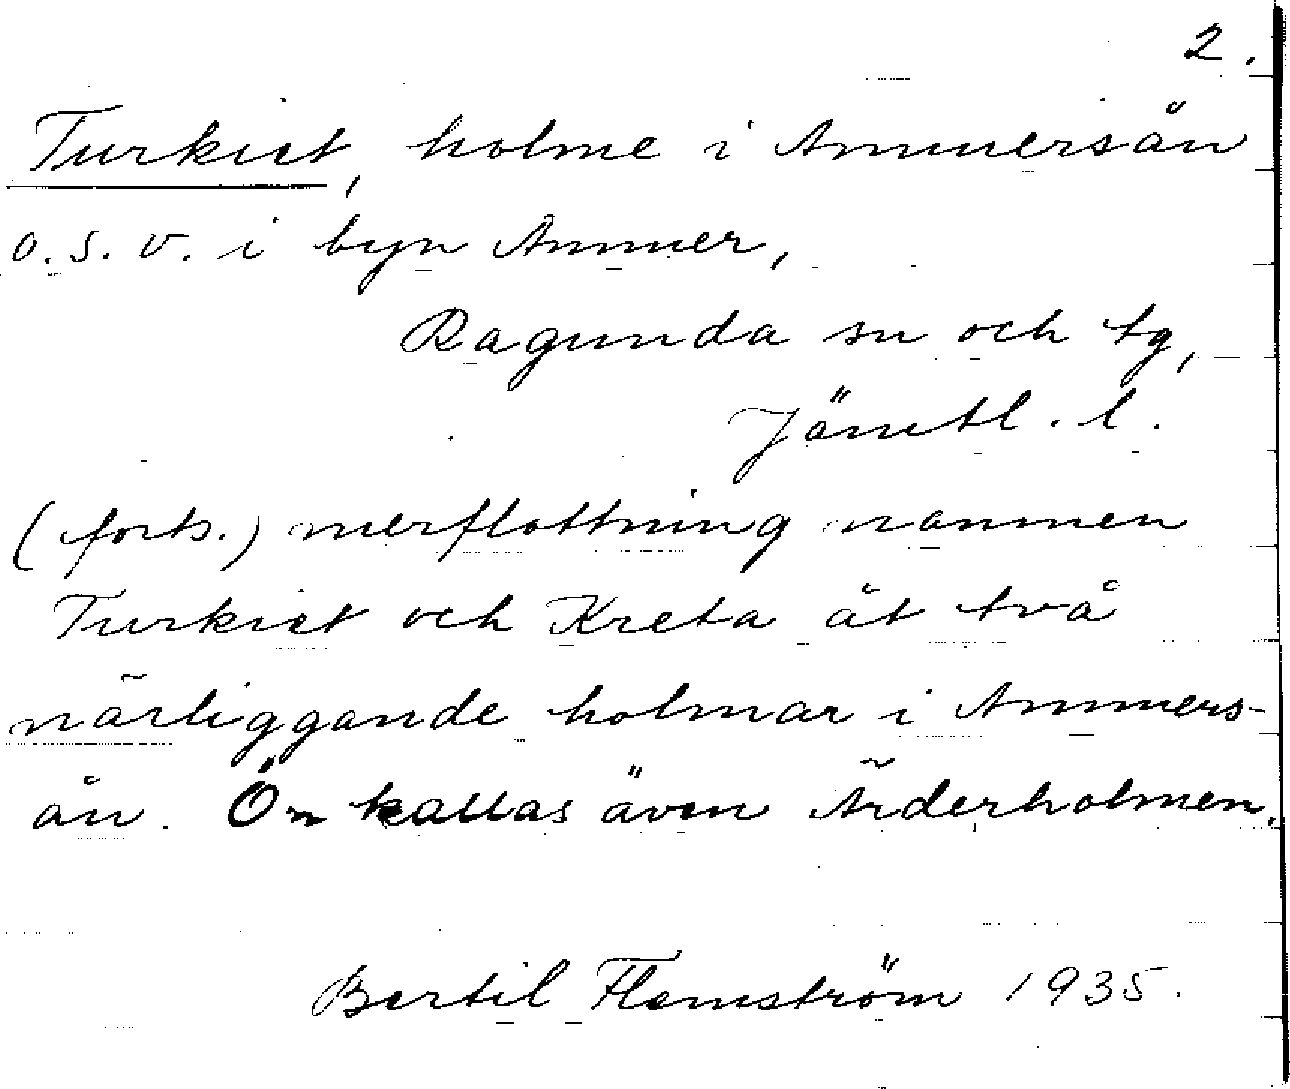 2.
Turkiet, holme i Ammersån
o.s.v. i byn Ammer,
Ragunda sn och tg,
Jämtl. l.
(forts.) merflottning namnen
Turkiet och Kreta åt två
närliggande holmar i Ammers-
ån. Ön kallas även Ärderholmen.
Bertil Flemström 1935.